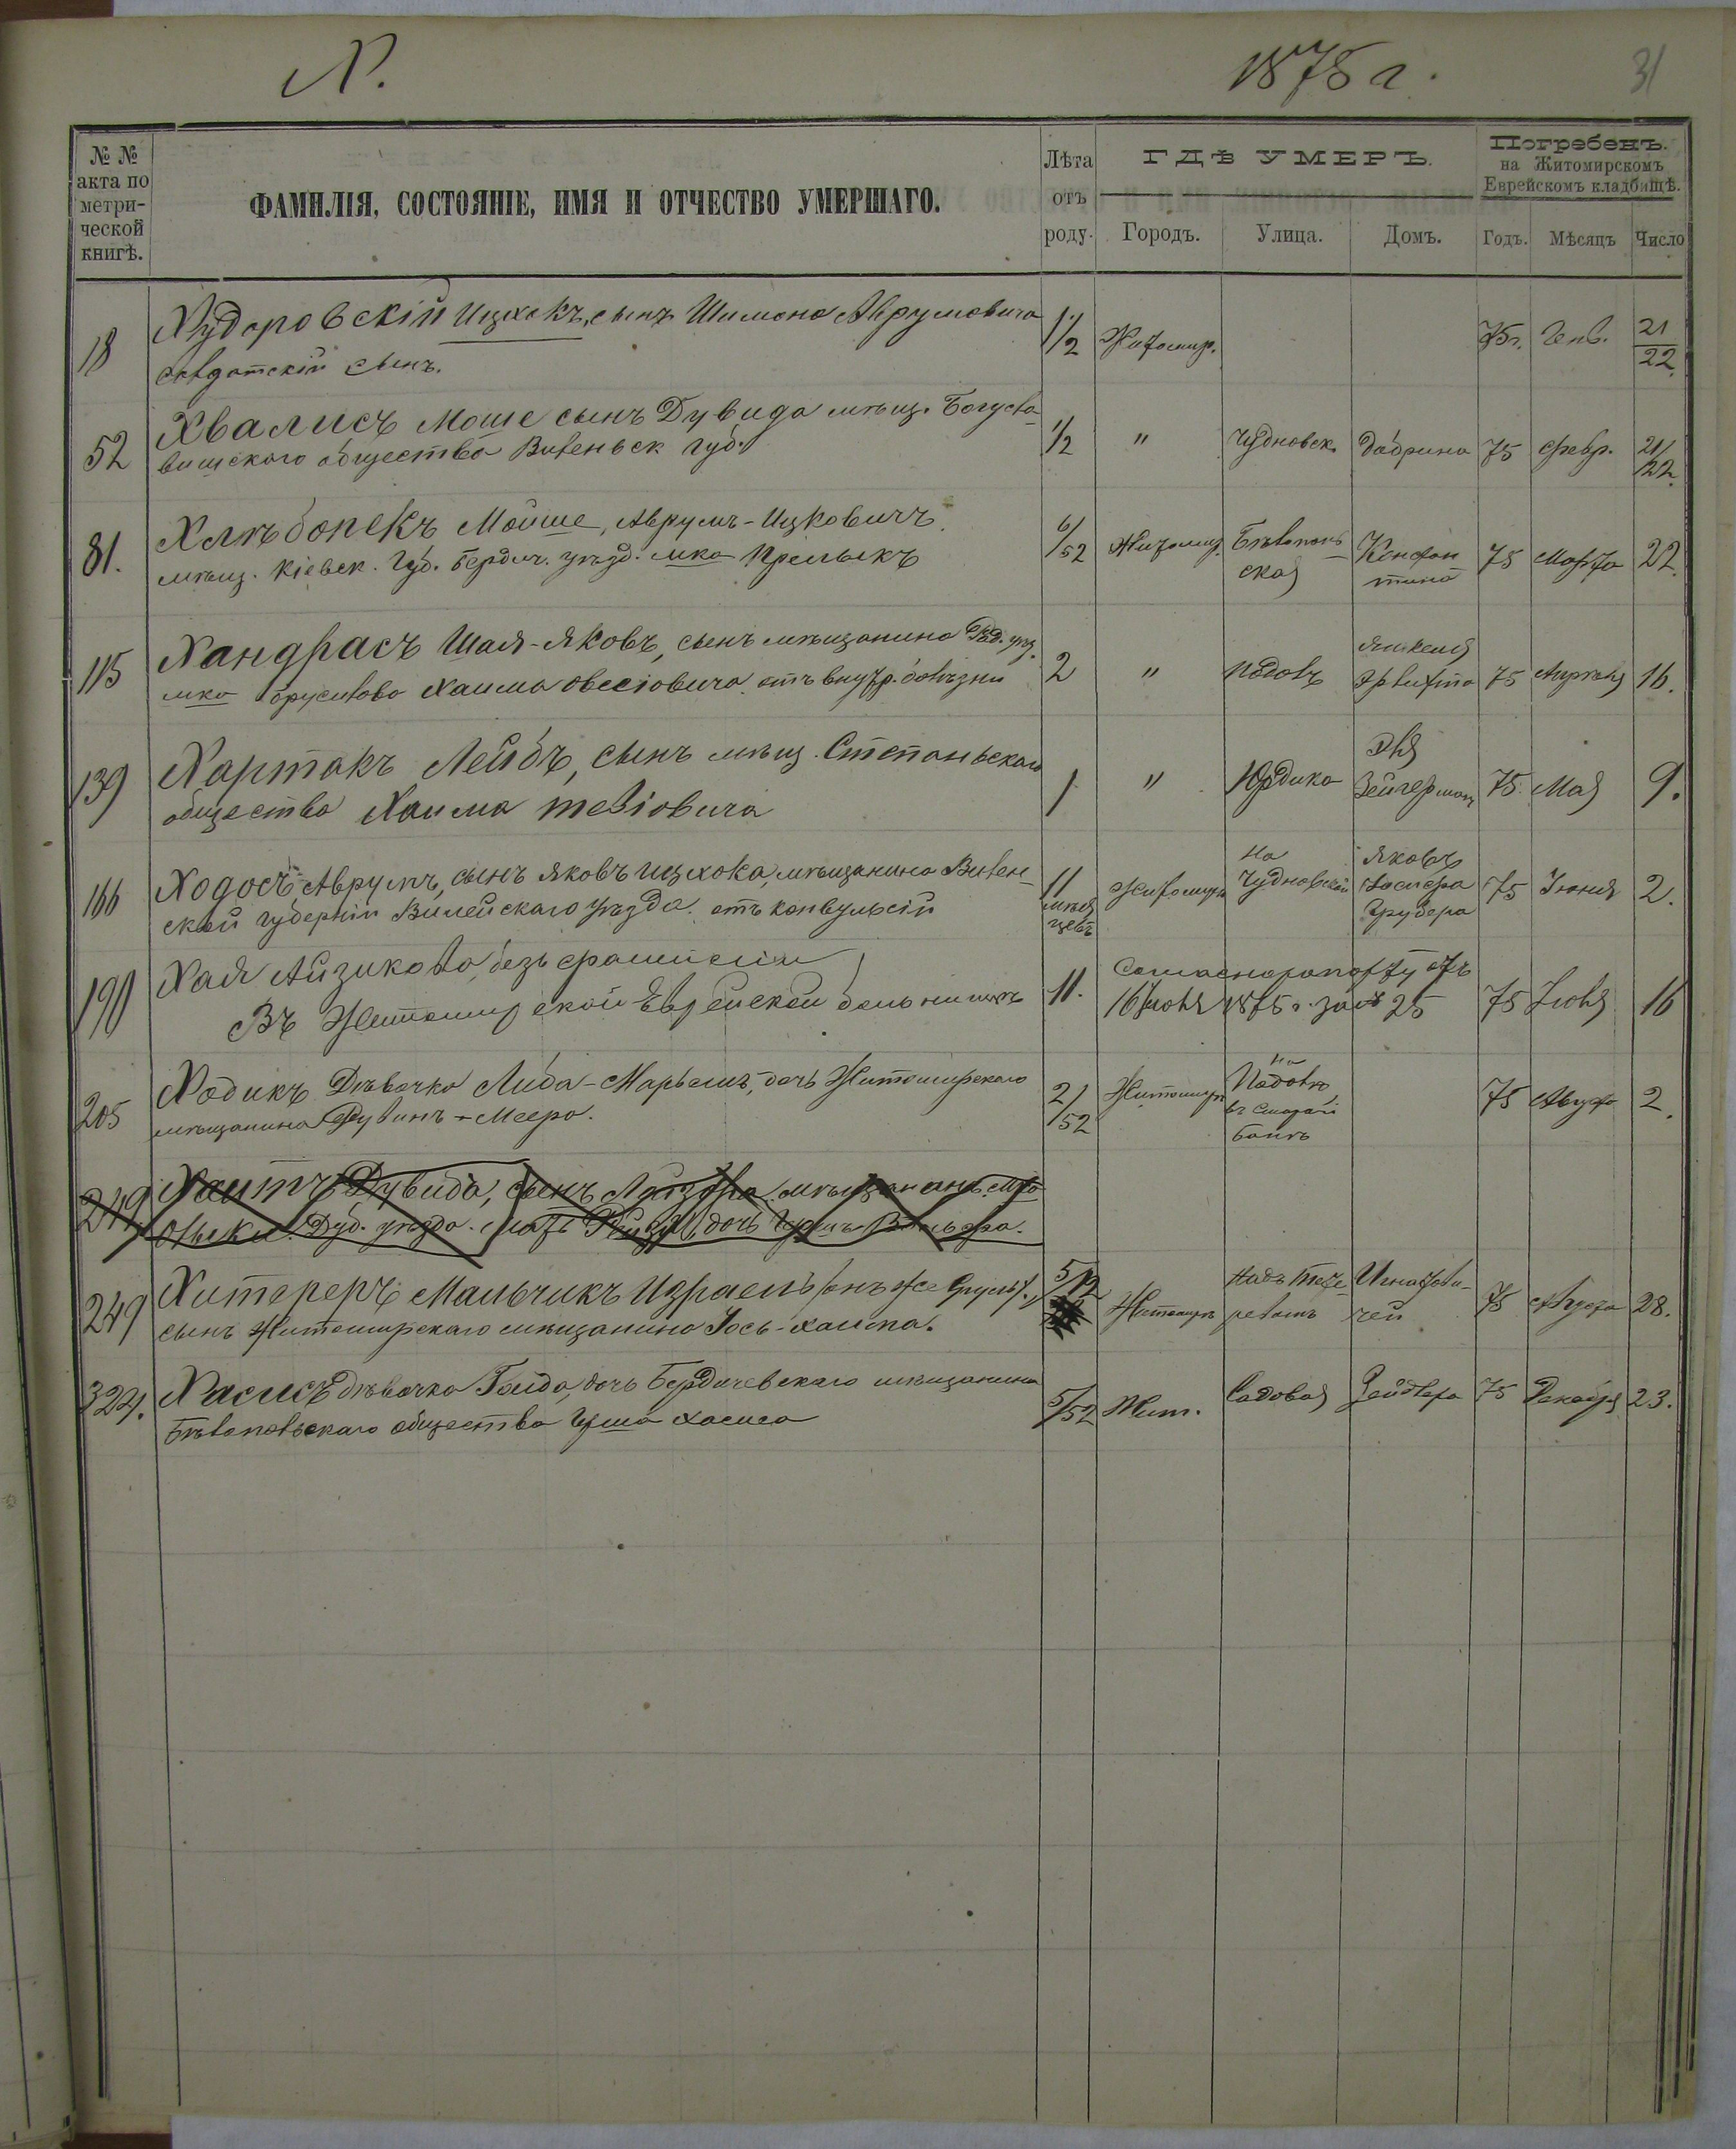 Х. 1875 г. 31
№ № акта по метрической книгѣ.
ФАМИЛІЯ, СОСТОЯНІЕ, ИМЯ И ОТЧЕСТВО УМЕРШАГО.
Лѣта отъ роду.
ГДѢ УМЕРЪ.
Городъ. Улица. Домъ.
Погребенъ.
на Житомирскомъ
Еврейскомъ кладбищѣ.
Годъ. Мѣсяцъ Число
18 Худоровскій Ицхокъ, сынъ Шимона Аврумовича 1/2 Житомир. 75г. Генв. 21/22
солдатскій сынъ.
52 Хвалисъ Моше сынъ Дувида мѣщ. Богусла-
вишскаго общества Виленьск губ. 1/2 " Чудновск. Добрина 75 Февр. 21/22.
81. Хлѣбопекъ Мойше, Аврумъ-Ицковичъ 6/52 Житомир. Бѣлопольская Констан
мѣщ. Кіевск. Губ. Бердич. уѣзд. мка Прелыкъ тина 75 Марта 22.
115 Хандрасъ Шая-Яковъ, сынъ мѣщанина Рад. уѣз.
мка Брусилова Хаима Овсіовича отъ внутр. болѣзни 2 " Подолъ 75 Апрѣля 16.
139 Хартакъ Лейбъ, сынъ мѣщ. Степаньскаго
общества Хаима Тевіовича 1 " Юрдика Зейгерман 75 Мая 9.
166 Ходосъ Аврумъ, сынъ Яковъ Ицхока, мѣщанина Вилен-
ской губерніи Вилейскаго уѣзда отъ конвульсій 11 мѣся цевъ Житомиръ На Чудновской Яковъ Грубера 75 Іюня 2.
190 Хая Айзикова, безъ фамиліи
Въ Житомирской Еврейской больницѣ 11. Согласно рапорту отъ
16 Іюля 1875 г. за № 25 75 Іюля 16
205 Ходикъ Дѣвочка Либа-Марьямъ, дочь Житомирскаго
мѣщанина Рувинъ-Меера. 2/52 Житомиръ На Подолѣ въ Старой Банѣ 75 Августа 2.
249 Хаитъ Дувидъ, сынъ Лейзера мѣщанинъ м-ко
Олыки Дуб. уѣзда. мать дочь Гершъ-Вольфа.
249 Хитереръ Мальчикъ Израель онъ же Сруль 5/12 Житомиръ Надъ Тете- Игнатови-
сынъ Житомирскаго мѣщанина Іось-Хаима. ревомъ чей 75 Августа 28.
324. Хасисъ дѣвочка Голда, дочь Бердичевскаго мѣщанина
Бѣлопольскаго общества Герша Хасиса 5/52 Жит. Садовая Зейдлера 75 Декабря 23.